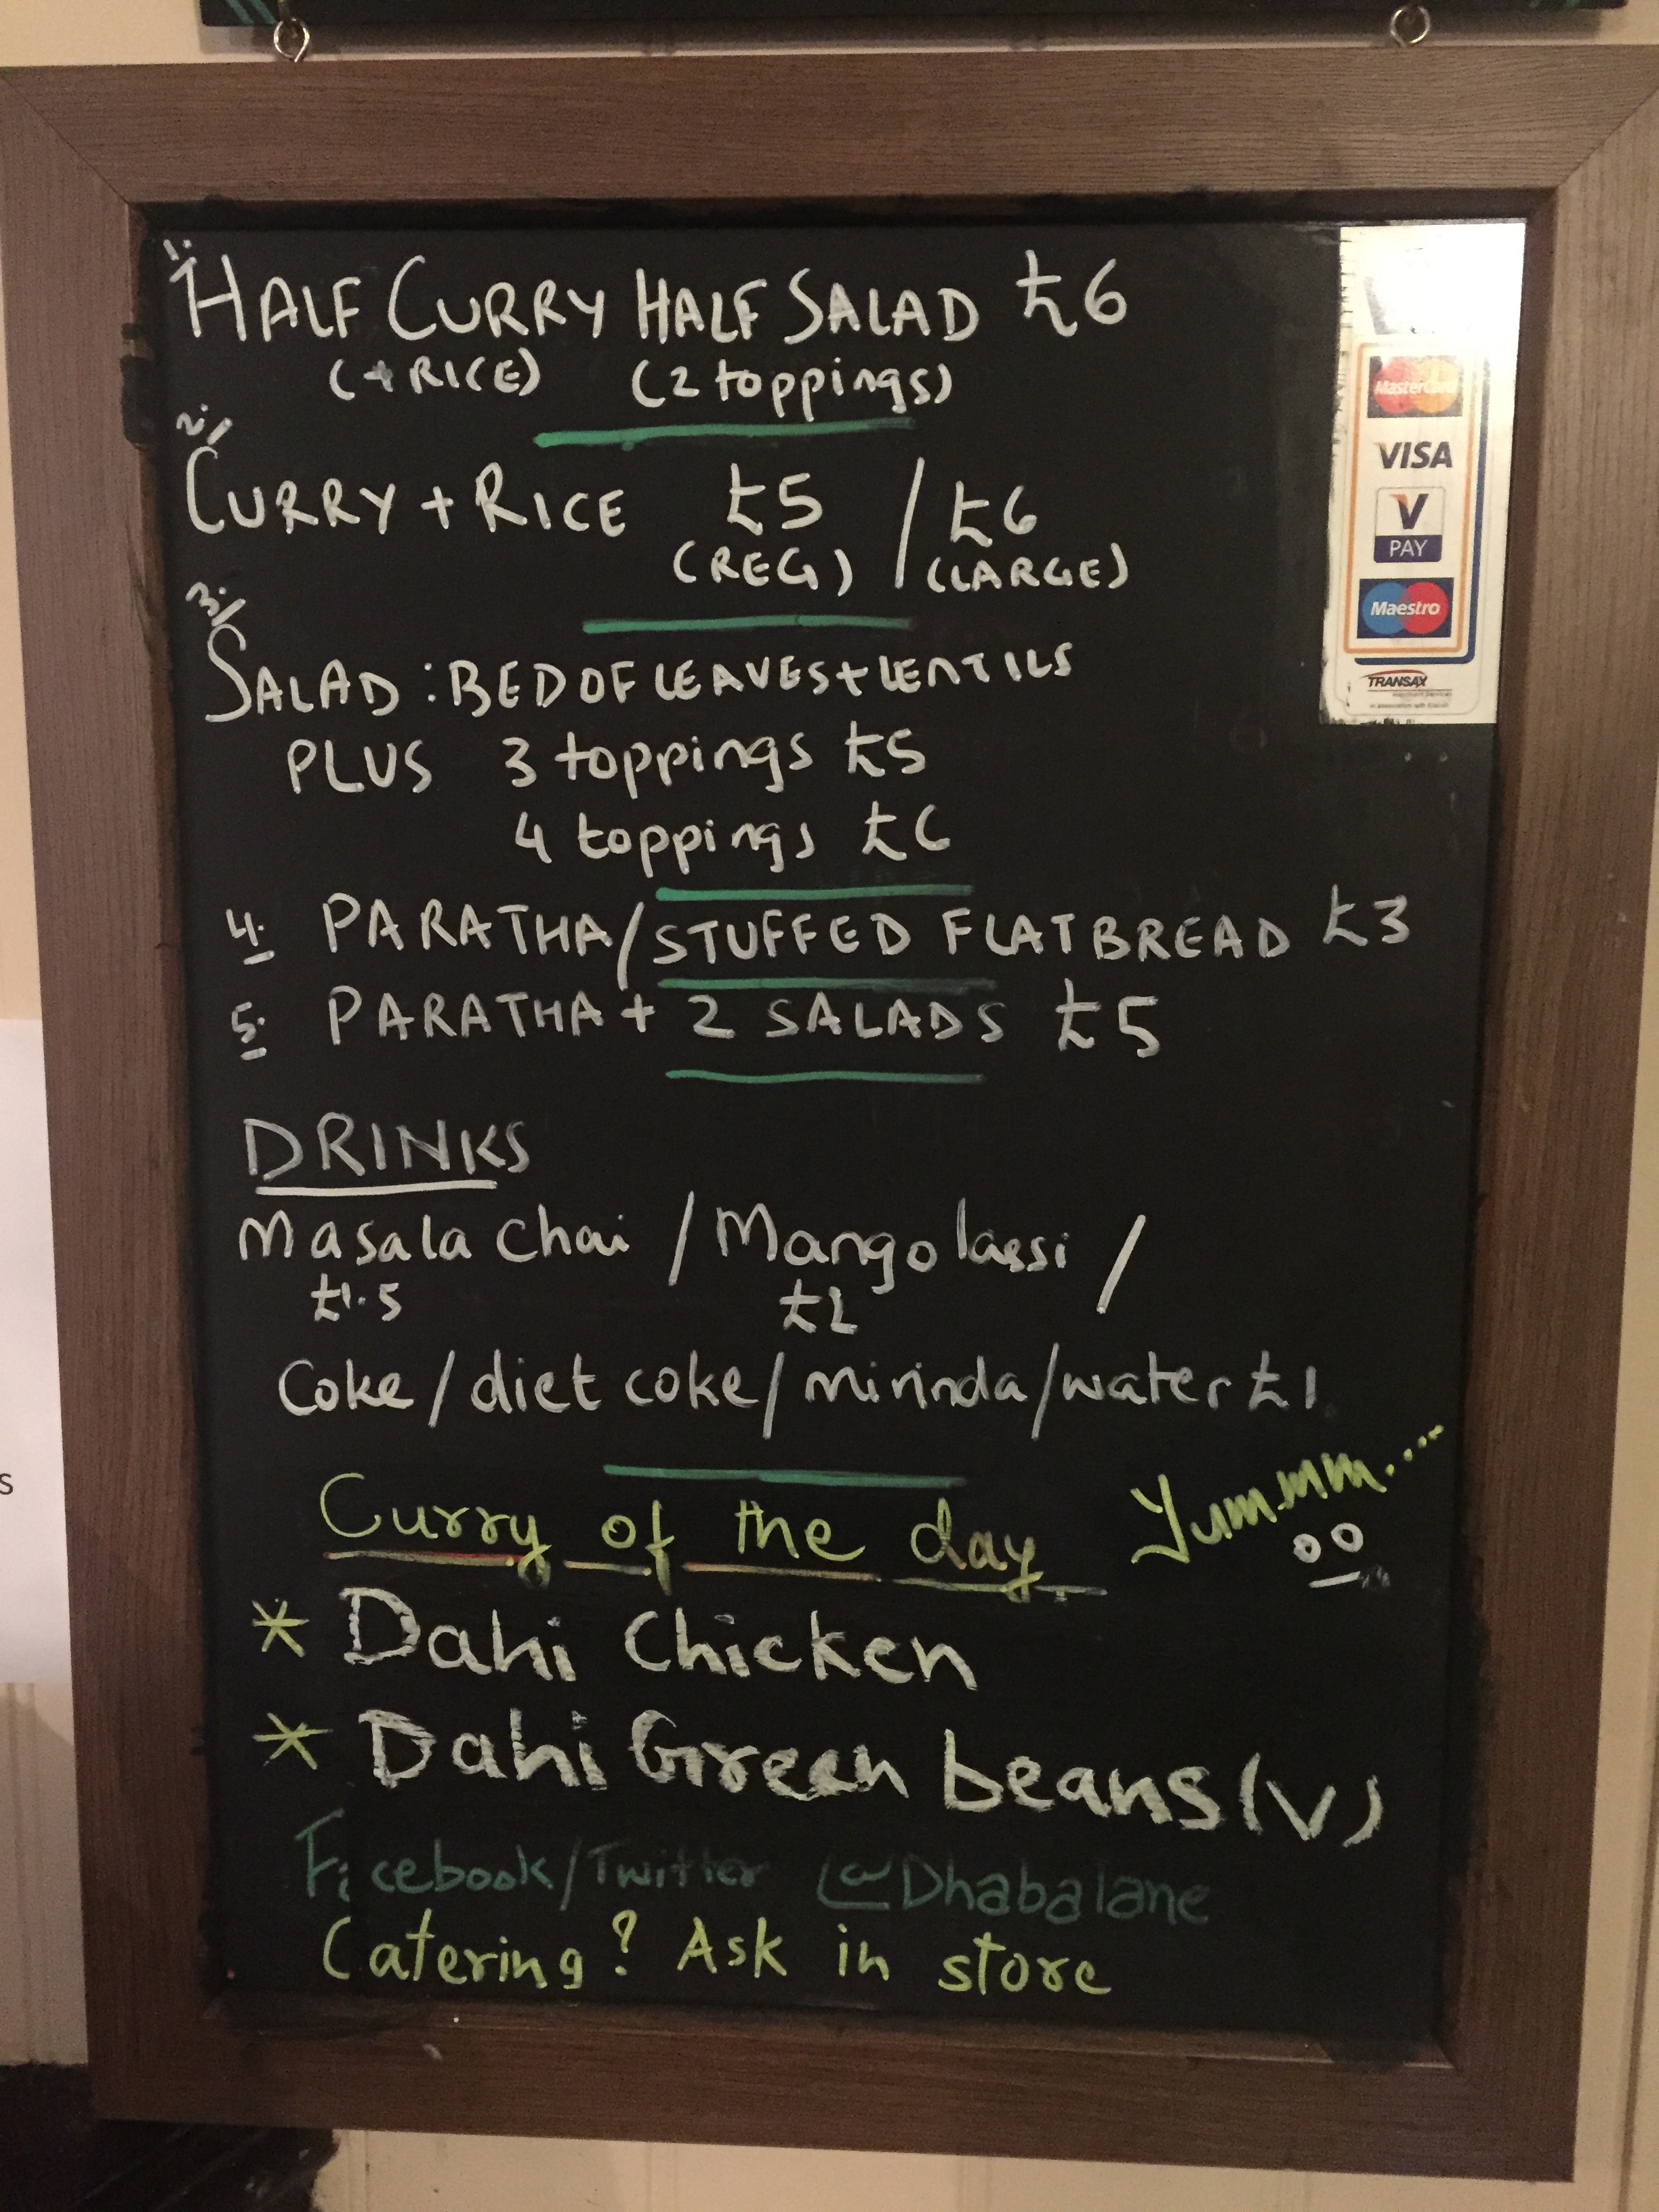 1.
HALF CURRY HALF SALAD £6
(+RICE) (2 toppings)
2./
CURRY + RICE £5 / £6
(REG) (LARGE)
3./
SALAD : BED OF LEAVES + LENTILS
PLUS 3 toppings £5
4 toppings £6
4. PARATHA/STUFFED FLATBREAD £3
5. PARATHA + 2 SALADS £5
DRINKS
Masala Chai / Mango lassi /
£1.5 £2
Coke / diet coke / mirinda / water £1
Curry of the day Yummmm....
* Dahi Chicken
* Dahi Green beans (V)
Facebook/Twitter @Dhabalane
Catering? Ask in store
MasterCard
VISA
V
PAY
Maestro
TRANSAX
s